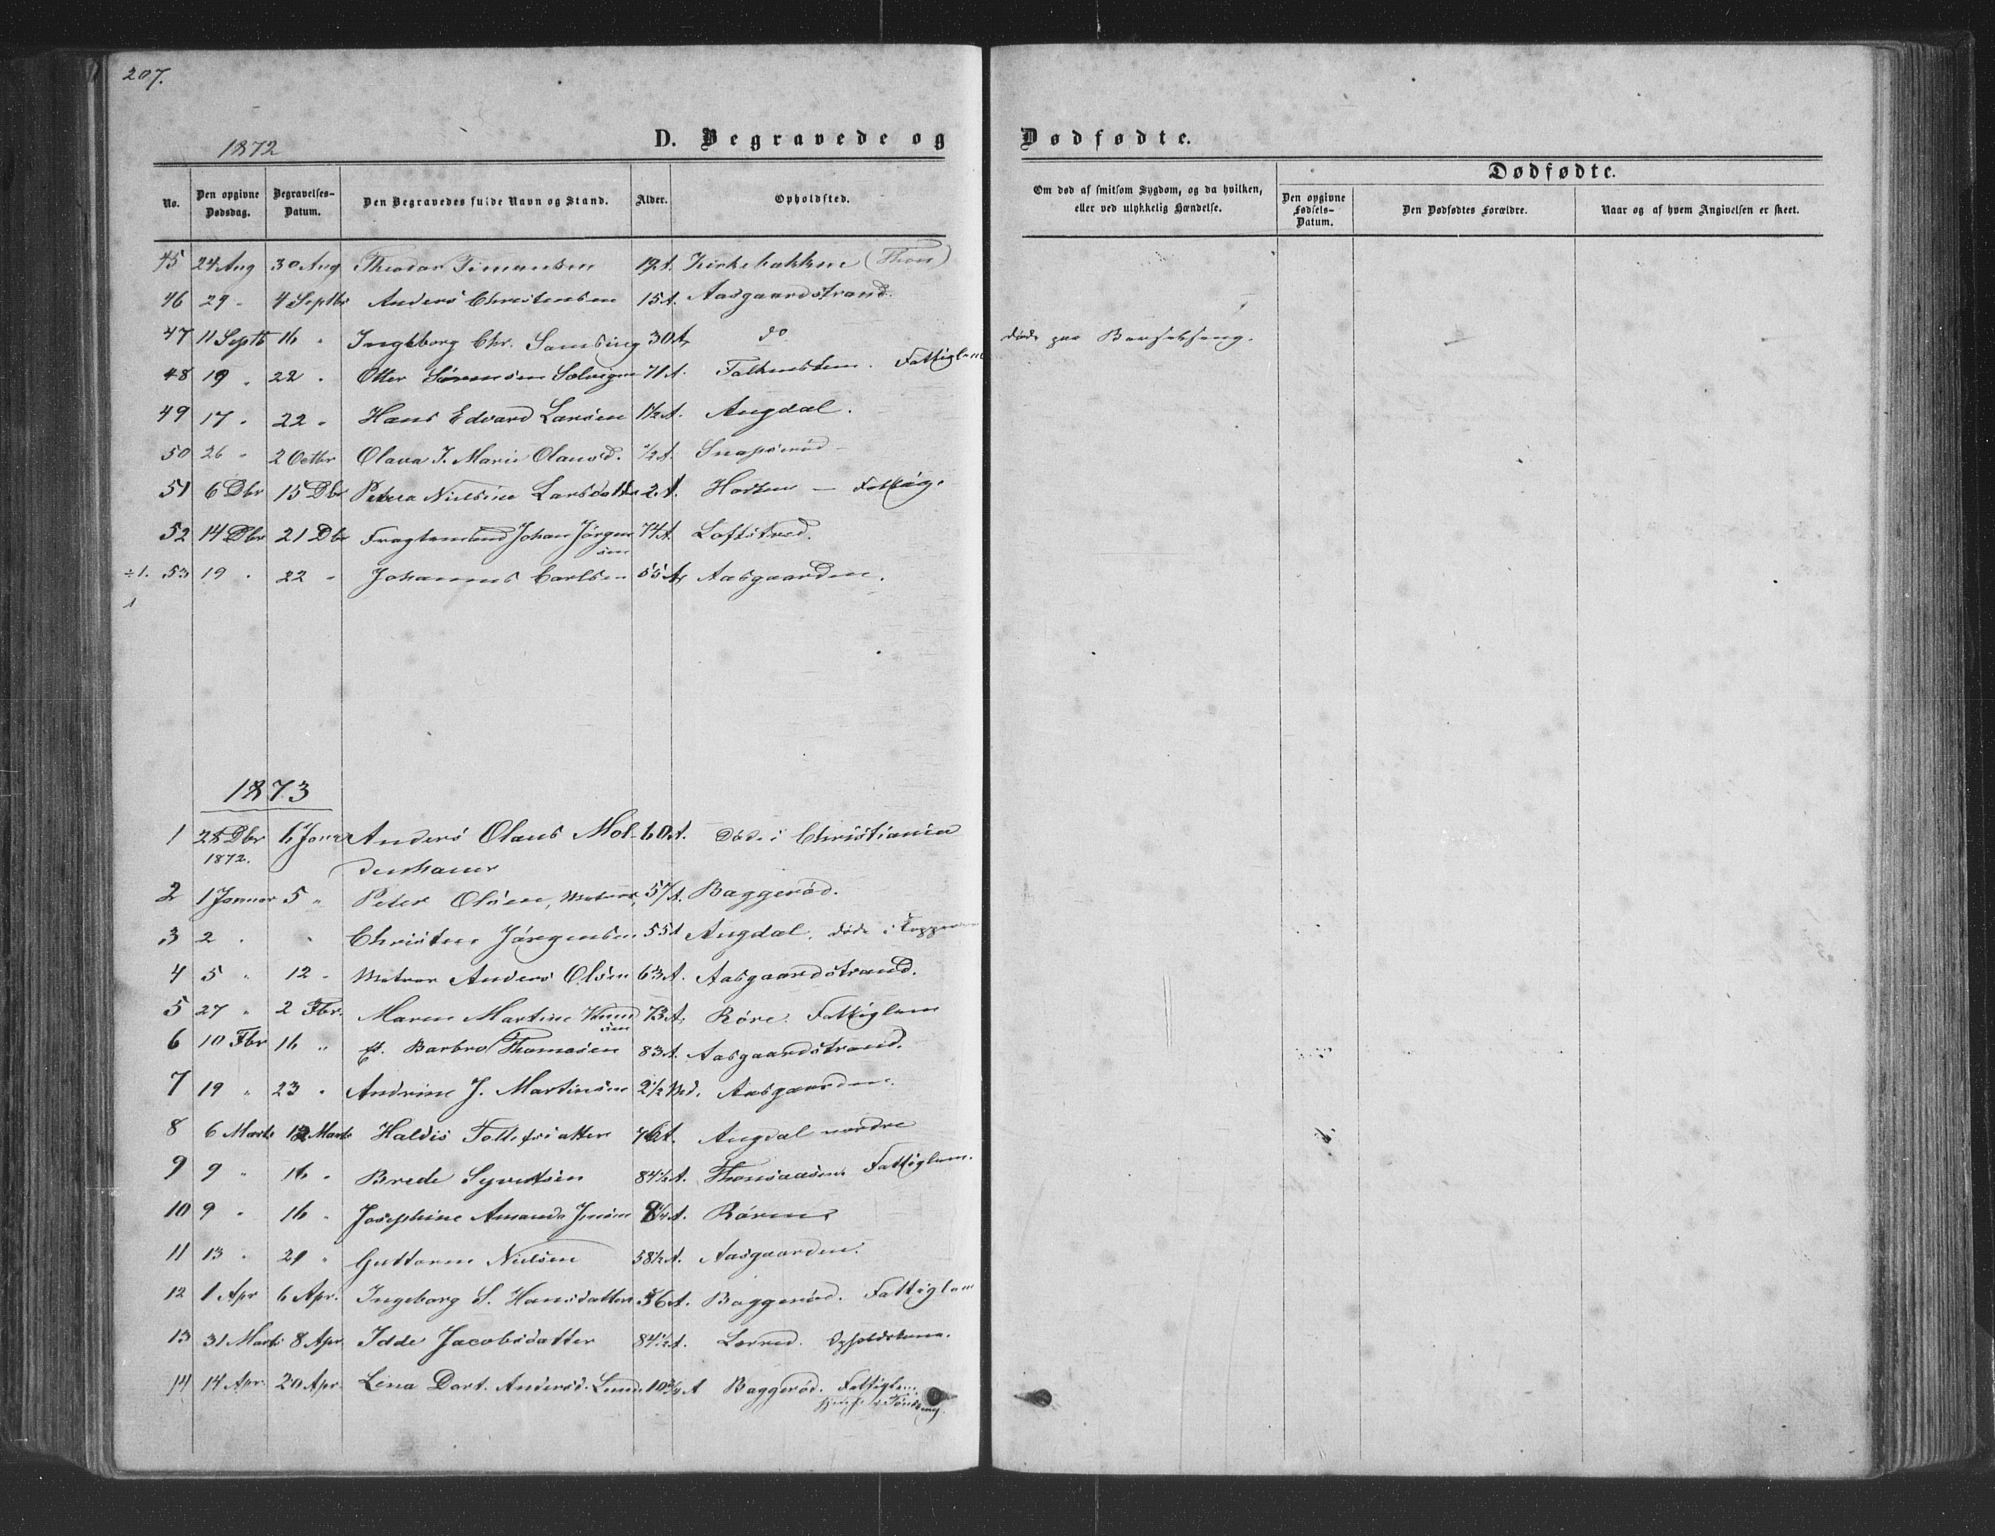 207.
1872
D. Begravede og Dødfødte.
No. Den opgivne Dødsdag. Begravelses-Datum. Den Begravedes fulde Navn og Stand. Alder. Opholdsted. Om død af smitsom Sygdom, og da hvilken, eller ved ulykkelig Hændelse. Dødfødte. Den opgivne Fødsels-Datum. Den Dødfødtes Forældre. Naar og af hvem Angivelsen er skeet.
45 24 Aug 30 Aug Theodor Simensen Kirkebakken (Thon)
46 29 " 4 Septbr Anders Christensen 15 A. Aasgaardstrand.
47 11 Septb 16 " Ingeborg Chr. Samsing 30 A. do døde paa Barselseng.
48 19 " 22 " Otter Sørensen 71 A. Falkensten. Fattiglem
49 17 " 22 " Hans Edvard Larsen 1½ A. Augdal.
50 26 " 2 Octbr Olava J. Marie Olausd. ½ A. Snapsrød
51 6 Dbr 15 Dbr Petrea Nielsine Larsdatter 2 A. Horten — Fattig.
52 14 Dbr 21 Dbr Fragtemand Johan Jørgensen 74 A. Loftstved.
÷1. 53 19 " 22 " Johannes Carlsen 55 A. Aasgaarden.
1873
1 28 Dbr 1872. 6 Janr Anders Olaus Moldenhauer 60 A. Døde i Christiania
2 1 Januar 5 " Peter Olsen, Matros, 57 A. Baggerød.
3 2 " " Christen Jørgensen 55 A Augdal, døde i
4 5 " 12 " Matros Anders Olsen 63 A. Aasgaardstrand.
5 27 " 2 Fbr. Maren Martine Knudsen 73 A. Røre. Fattiglem
6 10 Fbr 16 " E. Barbro Thomasen 83 A. Aasgaardstrand.
7 19 " 23 " Andrine J. Martinsen 2½ Md. Aasgaarden.
8 6 Marts 12 Marts Haldis Tollefsdatter 76 A. Augdal nordre
9 9 " 16 " Brede Syvertsen 84½ A. Thonsaasen. Fattiglem.
10 9 " 16 " Josephine Amanda Jensen Røren
11 13 " 21 " Guttorm Nielsen 58½ A. Aasgaarden.
12 1 Apr 6 Apr. Ingeborg S. Hansdatter 56 A. Baggerød. Fattiglem
13 31 Marts 8 Apr. Idde Jacobsdatter 84½ A. Lørred. Opholdskone.
14 14 Apr. 20 Apr. Lena Dort. Andersd. Lund 10¾ A Baggerød. Fattiglem.